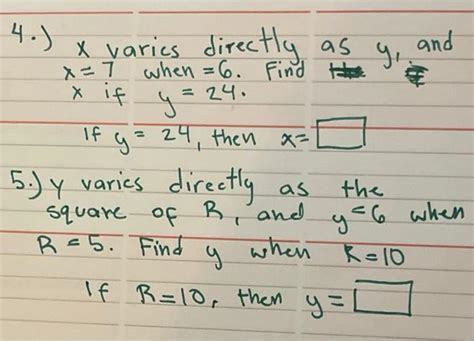 4.) x varies directly as y, and
x = 7 when = 6. Find
x if y = 24.
If y = 24, then x=
5.) y varies directly as the
square of R, and y=6 when
R = 5. Find y when R=10
If R=10, then y =